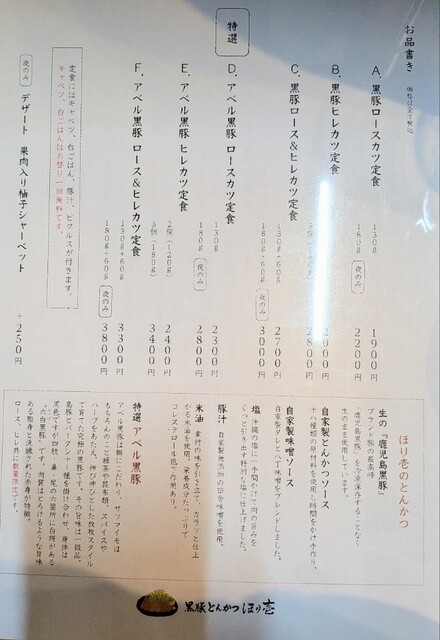 お品書き 価格は全て税込
A. 黒豚ロースカツ定食
130g 1900円
180g 夜のみ 2200円
B. 黒豚ヒレカツ定食
C. 黒豚ロース&ヒレカツ定食
130g+60g 2700円
180g+60g 夜のみ 3000円
特選
D. アベル黒豚 ロースカツ定食
130g 2300円
180g 夜のみ 2800円
E. アベル黒豚 ヒレカツ定食
2個(120g) 2400円
3個(180g) 3400円
F. アベル黒豚 ロース&ヒレカツ定食
130g+60g 3300円
180g+60g 夜のみ 3800円
定食にはキャベツ、白ごはん、豚汁、ピクルスが付きます。
キャベツ、白ごはんはお替り一回無料です。
夜のみ
デザート 果肉入り柚子シャーベット +250円
ほり壱のとんかつ
生の『鹿児島黒豚』
ブランド豚の最高峰
『鹿児島黒豚』を冷凍保存することなく
生のまま使用しています。
自家製とんかつソース
十八種類の原材料を使用し時間をかけ手作り。
自家製味噌ソース
自家製ダレと八丁味噌をブレンドしました。
塩 沖縄の塩に一手間かけて肉の旨みを
ぐっと引き出す特別な塩に仕上げました。
豚汁
自家製無添加の田舎味噌を使用。
米油 素材の味を引き立て、カラッと仕上
がる米油を使用。栄養成分たっぷりで
コレステロール低下作用あり。
特選 アベル黒豚
アベル黒豚は餌にこだわり、サツマイモは
もちろんのこと緑茶や昆布類、スパイスや
ハーブをあたえ、伸び伸びとした放牧スタイル
で育てた究極の黒豚です。その旨味は一級品。
島豚とバークシャー種を掛け合わせ、身体は
黒色で足が四ヶ所、鼻、尾の六箇所に白斑がある
"六白黒豚"です。肉質はとろけるような旨味
ある脂身と洗練された赤身が特徴。
ロース、ヒレ共に数量限定です。
黒豚とんかつ ほり壱